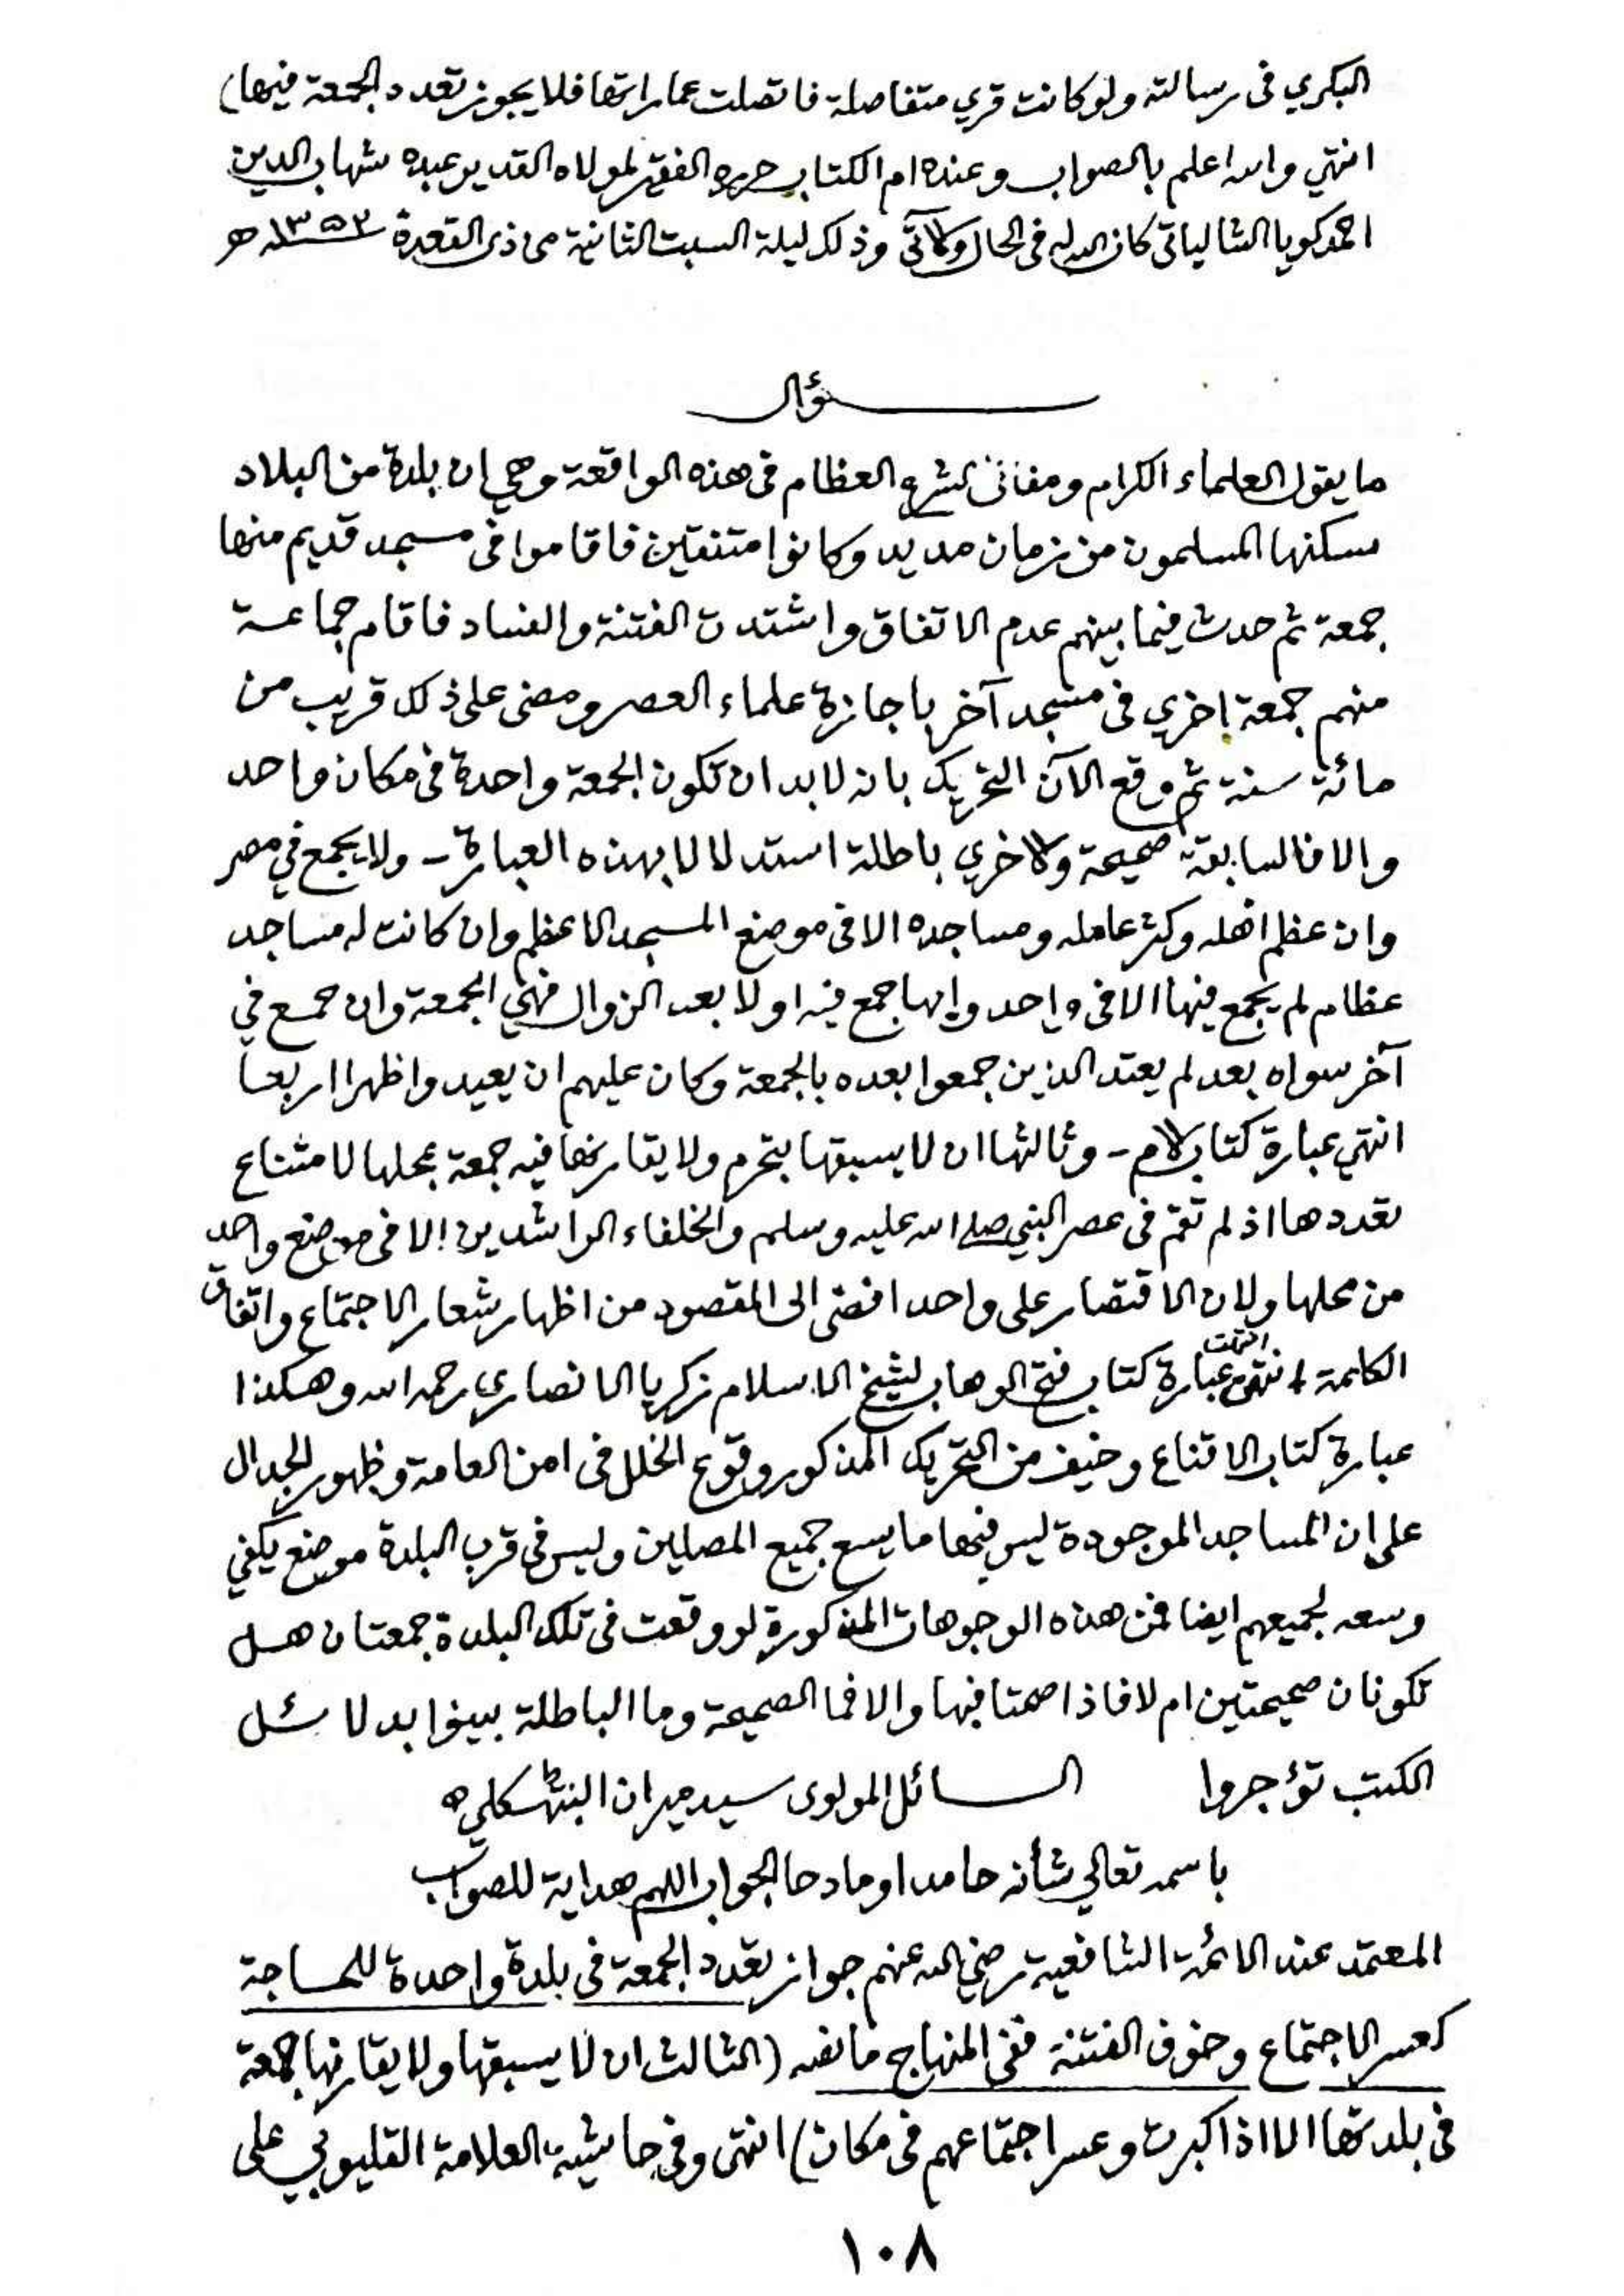 البكري فى رسالته ولو كانت قري متفاصلة فاتصلت عماراتها فلا يجوز تعدد الجمعة فيها)
انتهي والله اعلم بالصواب وعنده ام الكتاب حرره الفقير لمولاه القدير عبده شهاب الدين
احمد كويا الشالياتى كان الله له فى الحال والآتى وذلك ليلة السبت الثانية من ذى القعدة ١٣٥٣ه
سؤال
ما يقول العلماء الكرام ومفاتى الشرع العظام فى هذه الواقعة وهي ان بلدة من البلاد
سكنها المسلمون من زمان مديد وكانوا متفقين فاقاموا فى مسجد قديم منها
جمعة ثم حدث فيما بينهم عدم الاتفاق واشتدت الفتنة والفساد فاقام جماعة
منهم جمعة اخري فى مسجد آخر باجازة علماء العصر ومضى على ذلك قريب من
مائة سنة ثم وقع الآن التحريك بانه لا بد ان تكون الجمعة واحدة فى مكان واحد
والا فالسابقة صحيحة والاخري باطلة استدلالا بهذه العبارة - ولا يجمع في مصر
وان عظم اهله وكثر عامله ومساجده الا فى موضع المسجد الاعظم وان كانت له مساجد
عظام لم يجمع فيها الا فى واحد وايها جمع فيه اولا بعد الزوال فهي الجمعة وان جمع في
آخر سواه بعد لم يعتد الذين جمعوا بعده بالجمعة وكان عليهم ان يعيدوا ظهرا اربعا
انتهي عبارة كتاب الام - وثالثها ان لا يسبقها بتحرم ولا يقارنها فيه جمعة بمحلها لامتناع
تعددها اذ لم تقم فى عصر النبي صلى الله عليه وسلم والخلفاء الراشدين الا فى موضع واحد
من محلها ولان الاقتصار على واحد افضى الى المقصود من اظهار شعار الاجتماع واتفاق
الكلمة انتهت عبارة كتاب فتح الوهاب لشيخ الاسلام زكريا الانصاري رحمه الله وهكذا
عبارة كتاب الاقناع وخيف من التحريك المذكور وقوع الخلل فى امن العامة وظهور الجدال
على ان المساجد الموجودة ليس فيها ما يسع جميع المصلين وليس فى قرب البلدة موضع يكفي
وسعه لجميعهم ايضا فمن هذه الوجوهات المذكورة لو وقعت فى تلك البلدة جمعتان هل
تكونان صحيحتين ام لا فاذا صحتا فبها والا فما الصحيحة وما الباطلة بينوا بدلائل
الكتب تؤجروا السائل المولوى سيد ميران
باسمه تعالي شأنه حامدا ومادحا الجواب اللهم هداية للصواب
المعتمد عند الائمة الشافعية رضي الله عنهم جواز تعدد الجمعة فى بلدة واحدة للحاجة
كعسر الاجتماع وخوف الفتنة ففى المنهاج ما نصه (الثالث ان لا يسبقها ولا يقارنها جمعة
فى بلدتها الا اذا كبرت وعسر اجتماعهم فى مكان) انتهى وفي حاشية العلامة القليوبي على
١٠٨